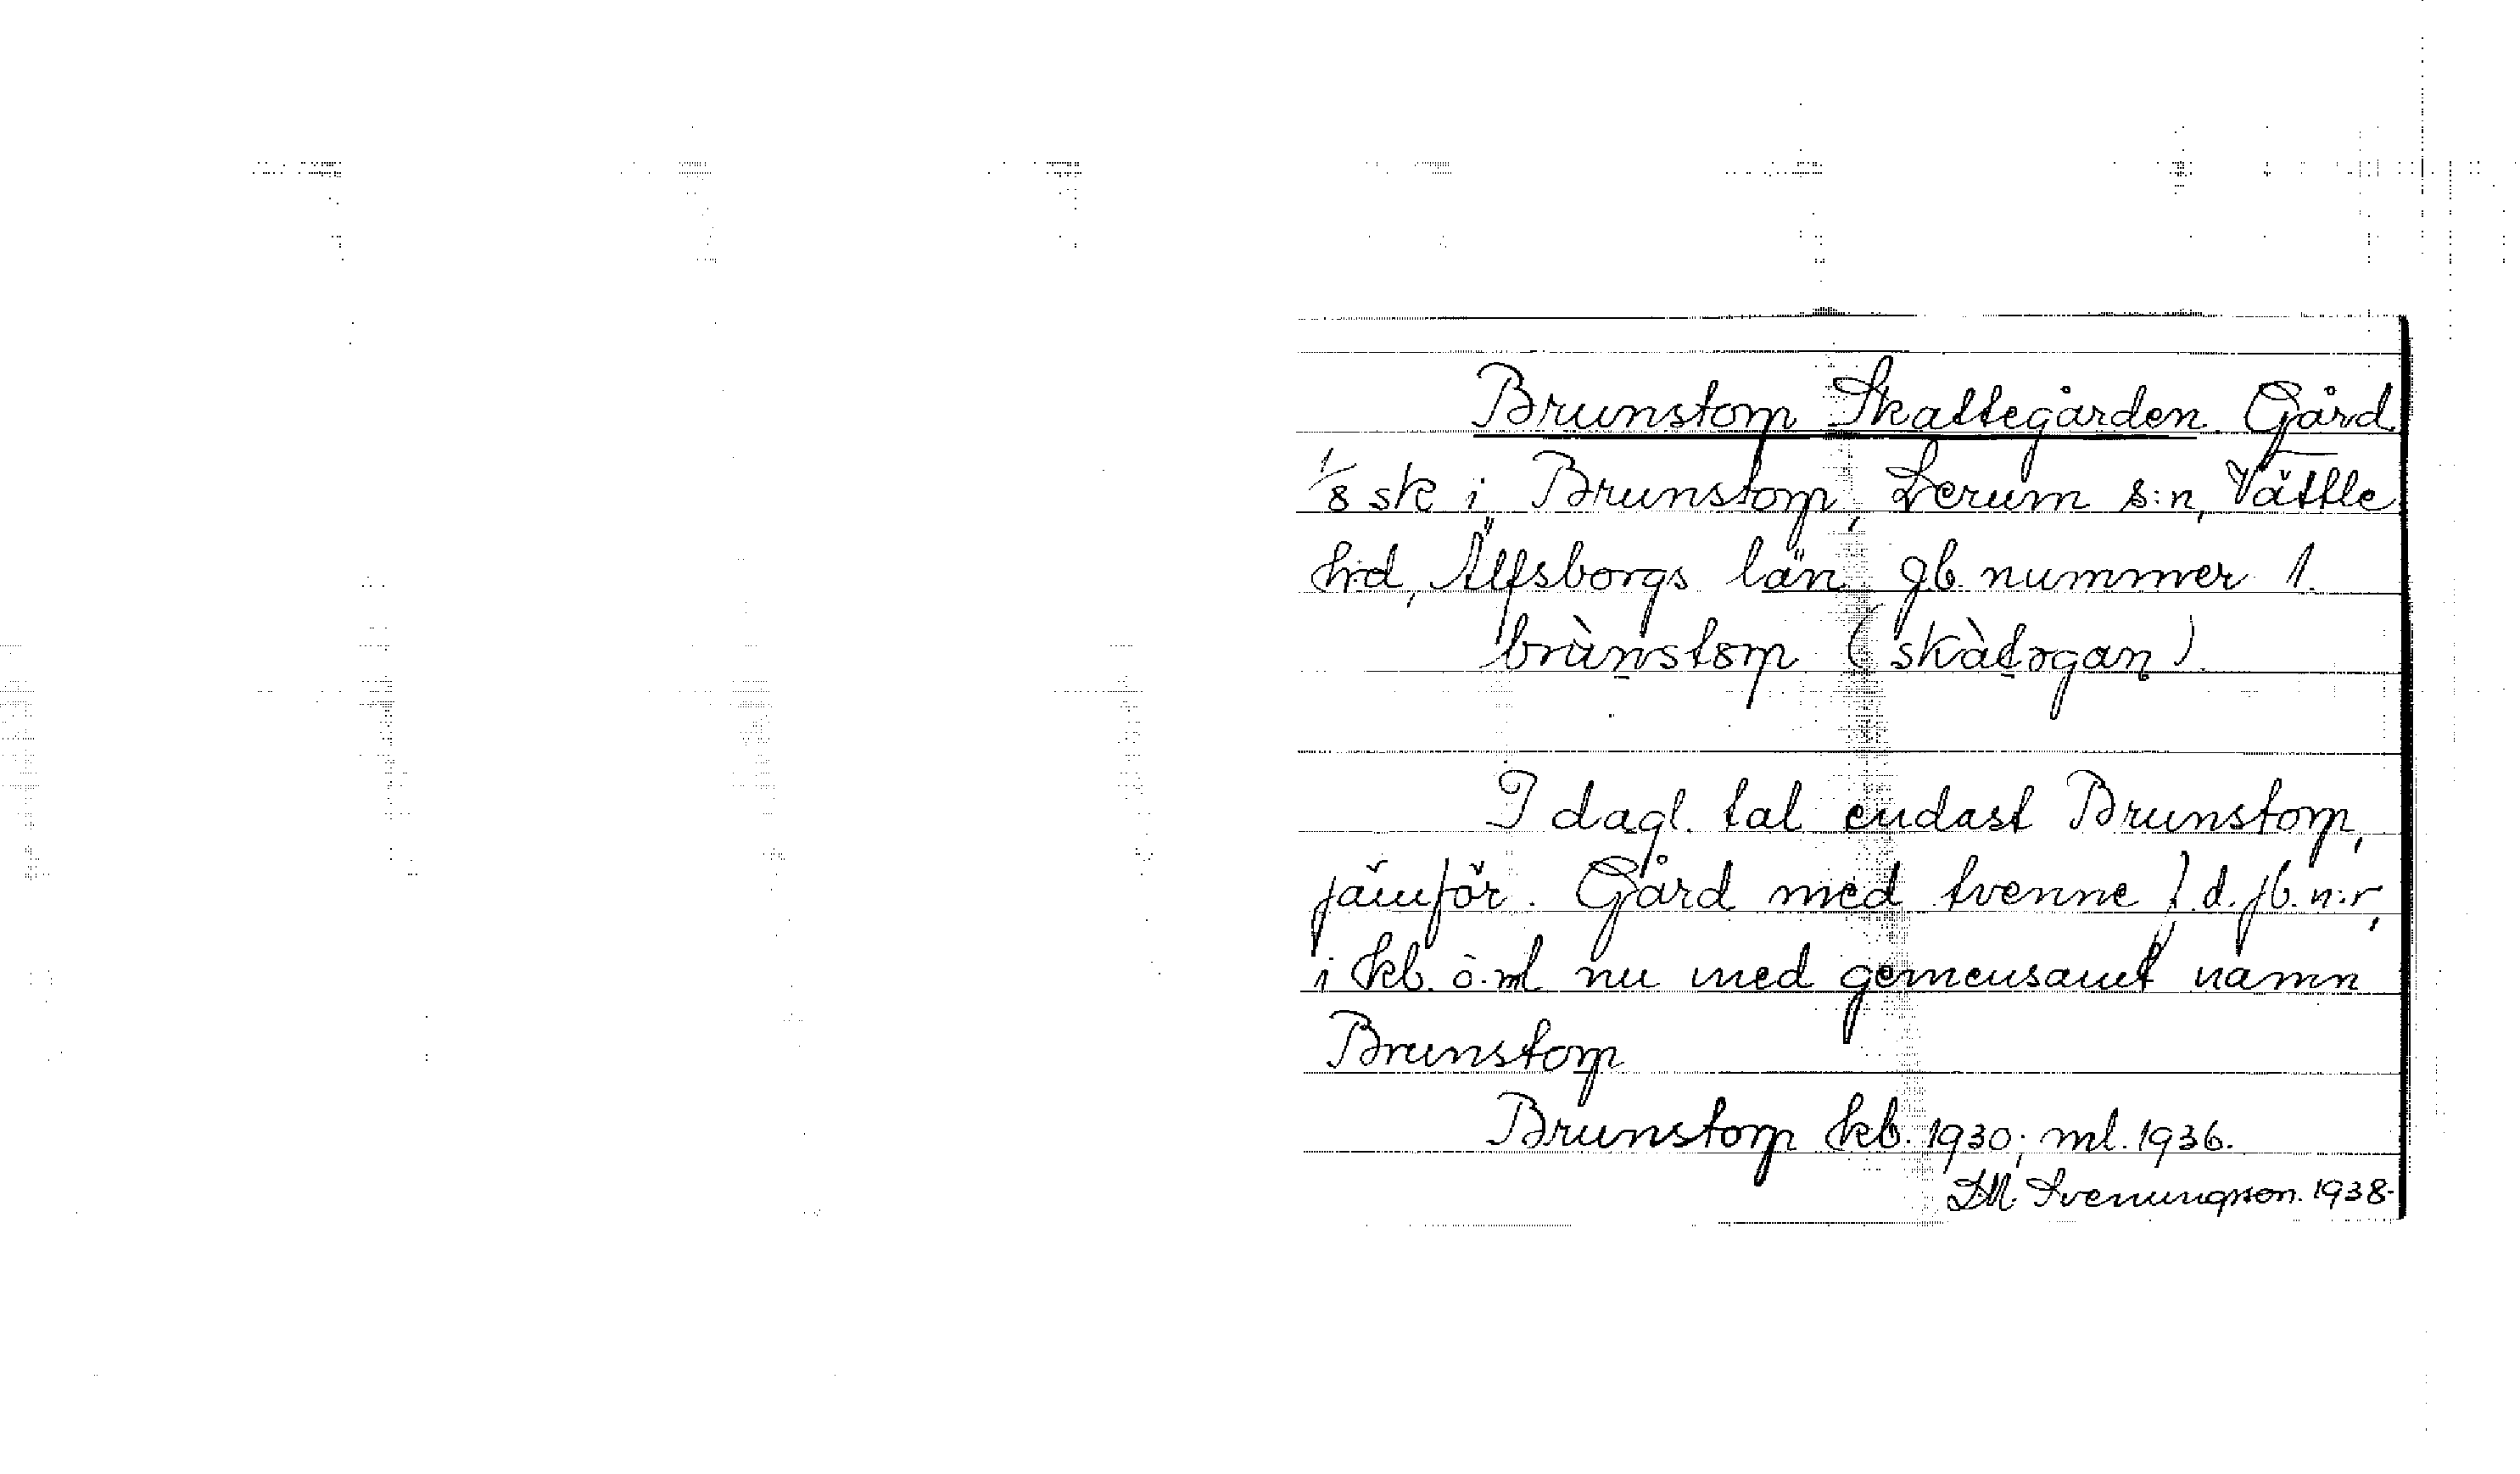 Brunstorp Skattegården. Gård
1/8 sk i Brunstorp, Lerum s:n, Vättle
h:d, Älfsborgs län, jb. nummer 1.
brùnstɔrp (skàtəgaɳ).
I dagl. tal endast Brunstorp,
jämför. Gård med tvenne f.d. jb. n:r,
i kb. o. ml nu med gemensamt namn
Brunstorp
Brunstorp kb. 1930; ml. 1936.
Svenungsson. 1938.